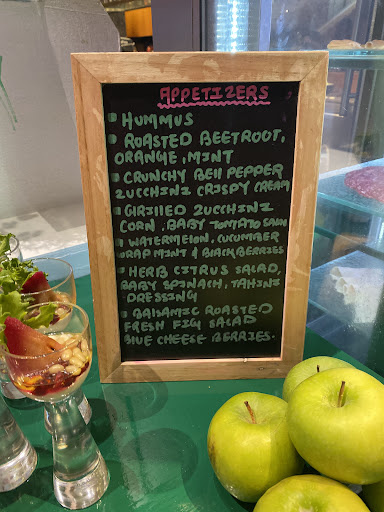 APPETIZERS
HUMMUS
ROASTED BEETROOT,
ORANGE, MINT
CRUNCHY BELL PEPPER
ZUCCHINI CRISPY CREAM
GRILLED ZUCCHINI
CORN, BABY TOMATO SALSA
WATERMELON, CUCUMBER
WRAP MINT & BLACKBERRIES
HERB CITRUS SALAD,
BABY SPINACH, TAHINI
DRESSING
BALSAMIC ROASTED
FRESH FIG SALAD
BLUE CHEESE BERRIES.